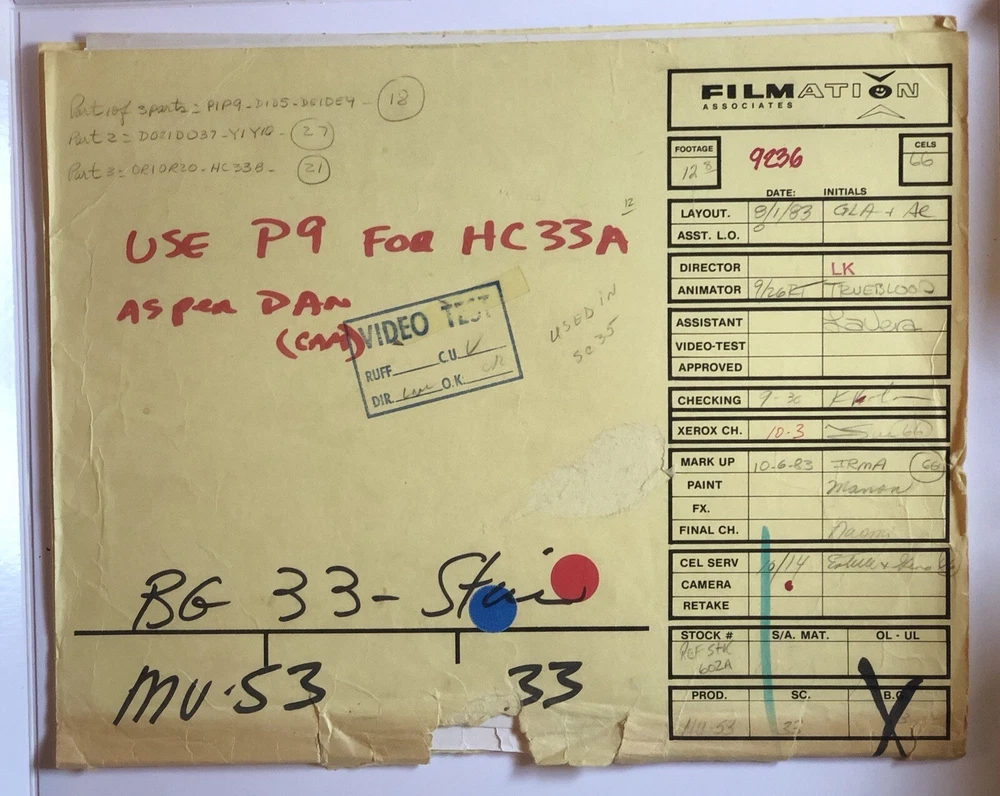 Part 1 of 3 parts = P1P9-D1D5-DE1DE4- 18
Part 2 = DO21DO37-Y1Y10- 27
Part 3 = OR1OR20-HC33B- 21
12
USE P9 FOR HC33A
AS PER DAN
(CAM)
VIDEO TEST
RUFF C.U.
DIR. O.K. OK
USED IN
SC 35
BG 33-
MU-53 33
FILMATION
ASSOCIATES
FOOTAGE
12 8
9236
CELS
66
DATE: INITIALS
LAYOUT. 8/1/83 GLA + AC
ASST. L.O.
DIRECTOR LK
ANIMATOR 9/26 TRUEBLOOD
ASSISTANT LaVera
VIDEO-TEST
APPROVED
CHECKING 9-30
XEROX CH. 10-3
MARK UP 10-6-83 IRMA 66
PAINT Manon
FX.
FINAL CH. Naomi
CEL SERV 10/14 Estelle +
CAMERA
RETAKE
STOCK # S/A. MAT. OL - UL
REF STK
602A
PROD. SC. B.G.
MU-53 33